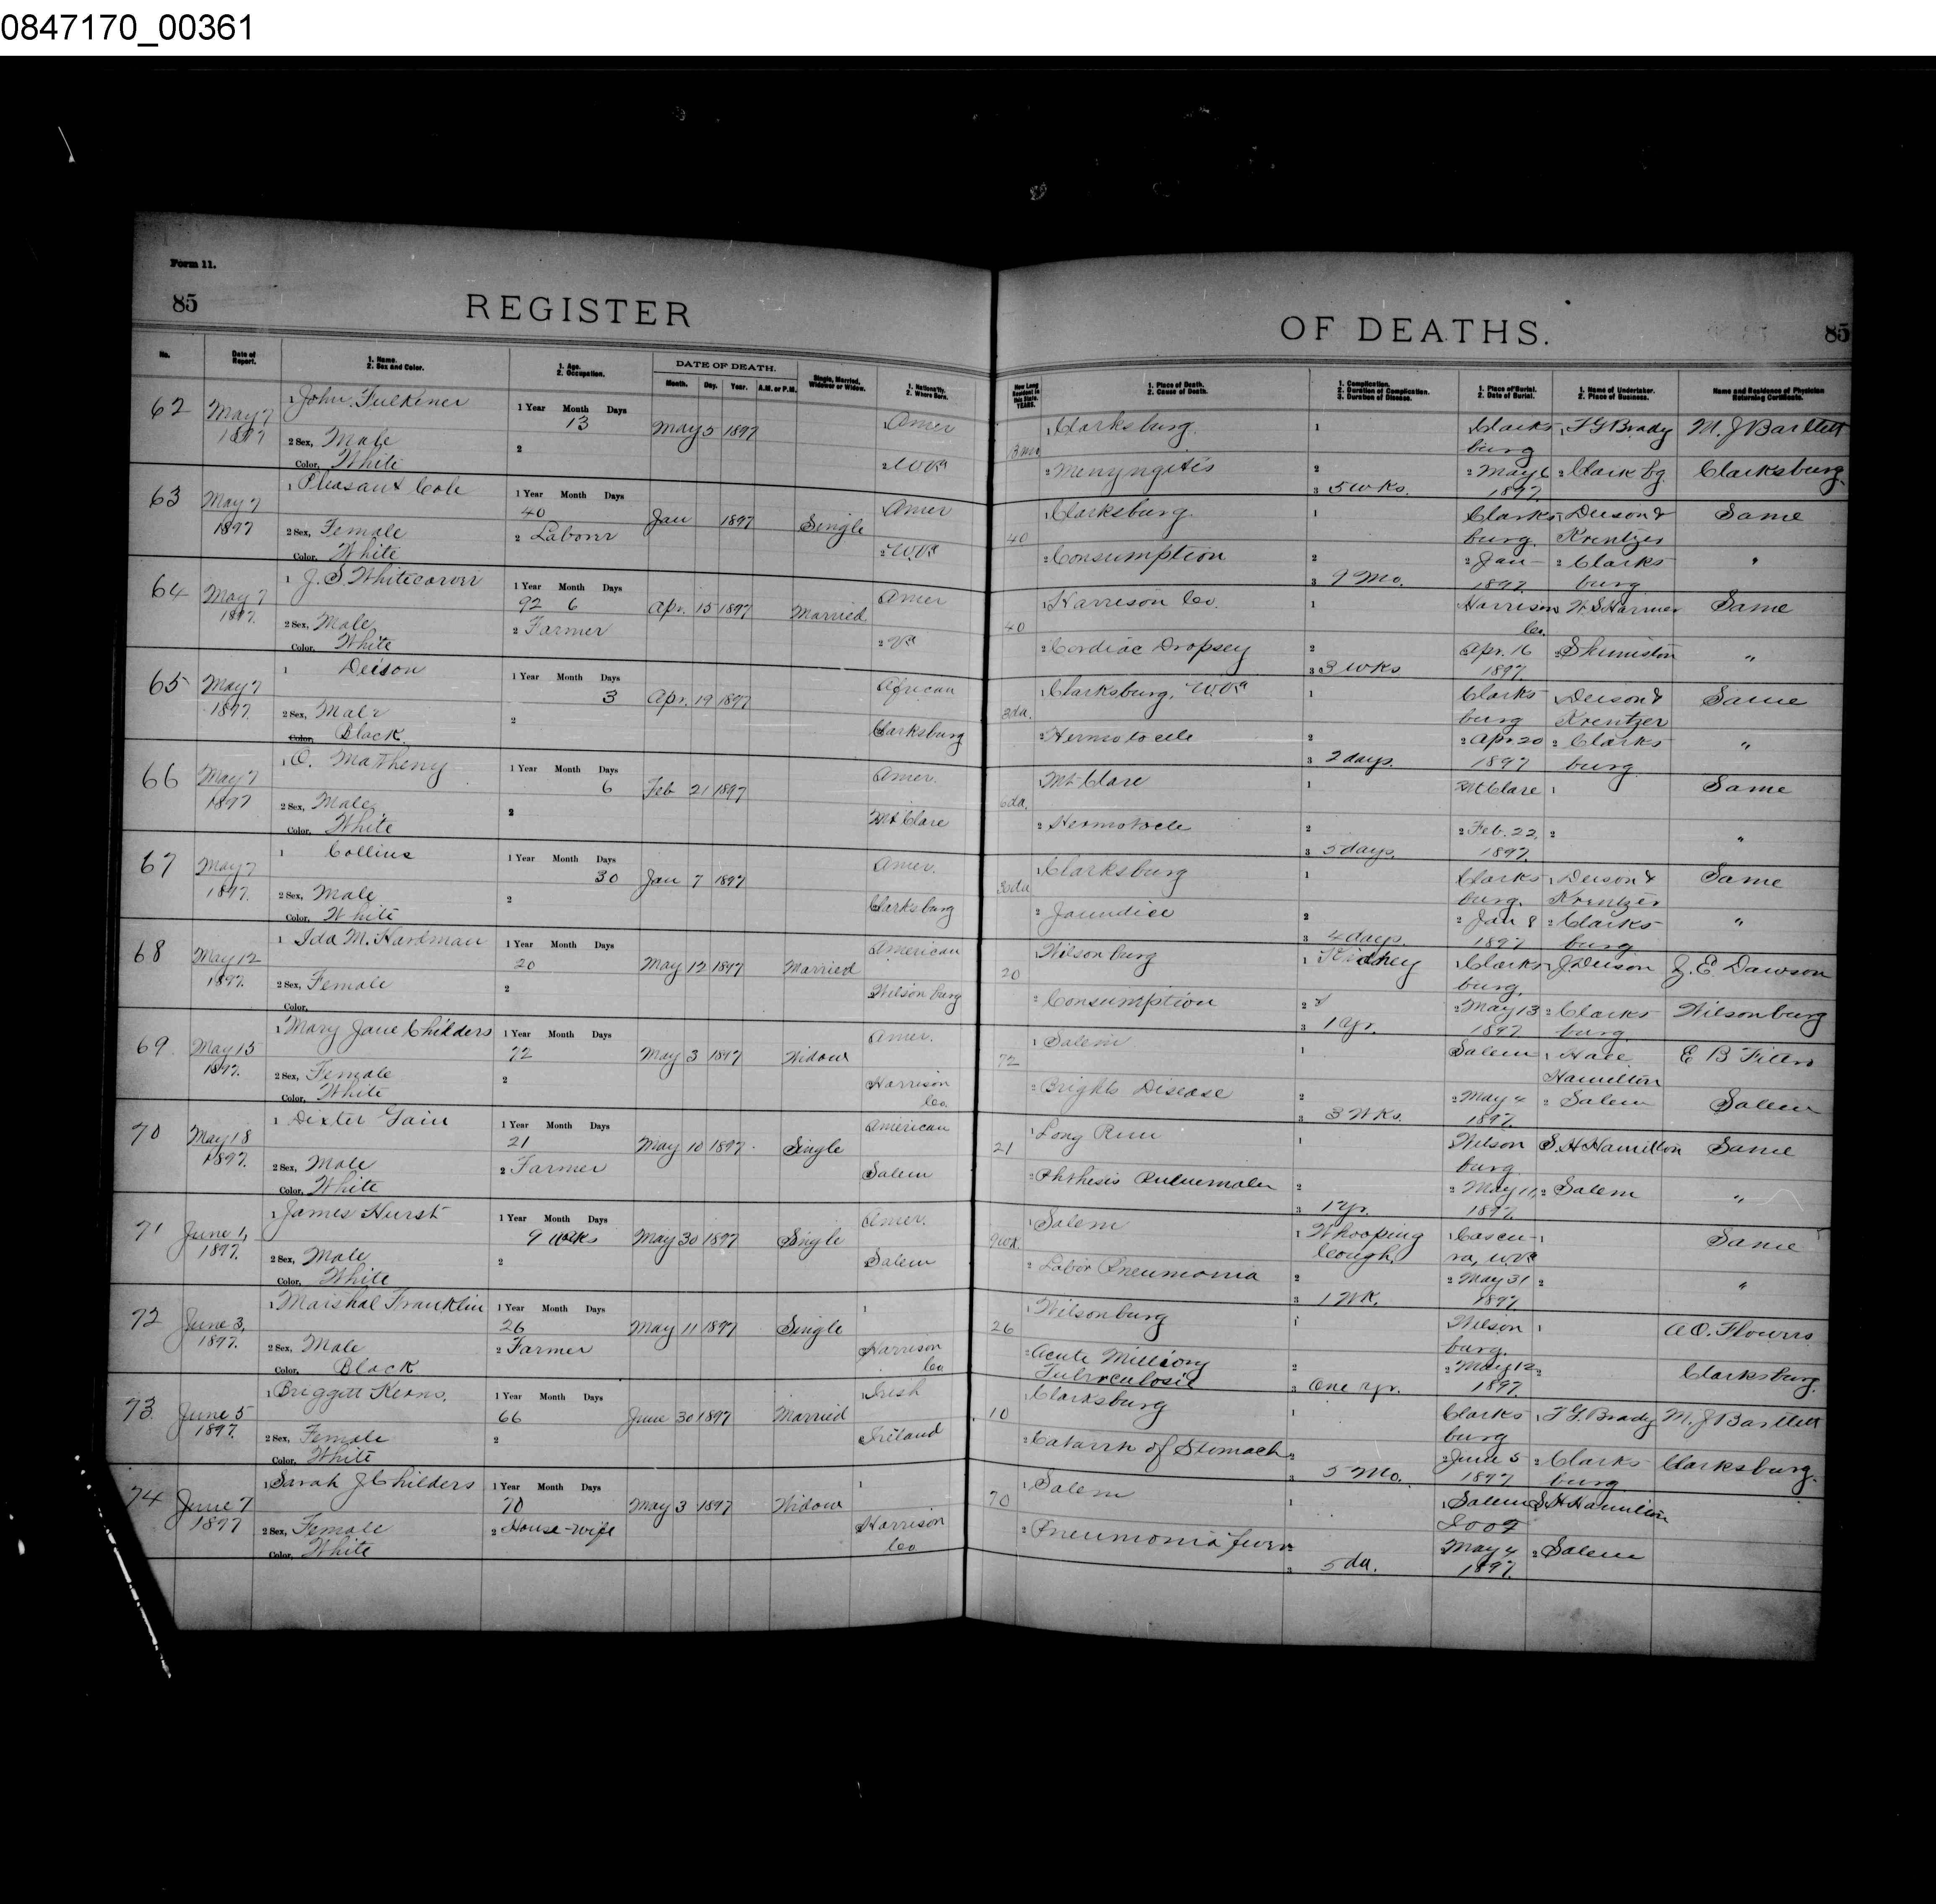 0847170_00361
Form 11.
85
REGISTER
OF DEATHS.
85
No.
Date of Report.
1. Name.
2. Sex and Color.
1. Age.
2. Occupation.
DATE OF DEATH.
Month. Day. Year. A.M. or P.M.
Single, Married, Widower or Widow.
1. Nationality.
2. Where Born.
How Long Resident in this State. YEARS.
1. Place of Death.
2. Cause of Death.
1. Complication.
2. Duration of Complication.
3. Duration of Disease.
1. Place of Burial.
2. Date of Burial.
1. Name of Undertaker.
2. Place of Business.
Name and Residence of Physician Returning Certificate.
62 May 7 1 John Fulkener 1 Year Month Days Amer 1 Clarksburg. 1 Clarks 1 F G Brady M. J Bartlett
1897 13 May 5 1897 13 mo burg
2 Sex, Male 2 2 W Va 2 Menyngitis 2 2 May 6 2 Clark bg. Clarksburg.
Color, White 3 5 wks. 1897
63 May 7 1 Pleasant Cole 1 Year Month Days Amer 1 Clarksburg 1 Clarks 1 Deison & Same
1897 40 Jan 1897 Single 40 burg. Krentzer
2 Sex, Female 2 Laborer 2 W.Va 2 Consumption 2 2 Jan - 2 Clarks "
Color, White 3 9 Mo. 1897. burg
64 May 7 1 J. S. Whitecarver 1 Year Month Days Amer 1 Harrison Co. 1 Harrison W. S Harmer Same
1897. 92 6 Apr. 15 1897 Married 40 Co.
2 Sex, Male 2 Farmer 2 Va 2 Cordiac Dropsey 2 Apr. 16 2 Shinnston "
Color, White 3 3 wks 1897.
65 May 7 1 Deison 1 Year Month Days African 1 Clarksburg, W.Va 1 Clarks 1 Deison & Same
1897. 3 Apr. 19 1897 3 da. burg Krentzer
2 Sex, Male 2 Clarksburg 2 Hermotocele 2 2 Apr 20 2 Clarks "
Color, Black. 3 2 days. 1897 burg
66 May 7 1 O. Matheny 1 Year Month Days Amer. 1 Mt Clare 1 Mt Clare 1 Same
1897 6 Feb 21 1897 6 da.
2 Sex, Male 2 Mt Clare 2 Hermotocele 2 2 Feb. 22, 2 "
Color, White 3 5 days. 1897.
67 May 7 1 Collins 1 Year Month Days Amer. 1 Clarksburg 1 Clarks 1 Deison & Same
1897. 30 Jan 7 1897 30 da burg. Krentzer
2 Sex, Male 2 Clarksburg 2 Jaundice 2 2 Jan 8 2 Clarks "
Color, White 3 4 days. 1897 burg
68 May 12 1 Ida M. Hardman 1 Year Month Days American 1 Wilsonburg 1 Kidney 1 Clarks 1 J Deison J. E. Dawson
1897. 20 May 12 1897 Married 20 burg.
2 Sex, Female 2 2 Wilsonburg 2 Consumption 2 2 May 13 2 Clarks Wilsonburg
Color, 3 1 Yr. 1897 burg.
69. May 15 1 Mary Jane Childers 1 Year Month Days Amer. 1 Salem 1 Salem 1
1897. 72 May 3 1897 Widow 72 Hamilton
2 Sex, Female 2 Harrison Co. 2 Brights Disease 2 2 May 4 2 Salem Salem
Color, White 3 3 Wks. 1897.
70 May 18 1 Dexter Gain 1 Year Month Days American 1 Long Run 1 Wilson S. H Hamilton Same
1897. 21 May 10 1897. Single 21 burg
2 Sex, Male 2 Farmer Salem 2 Phthesis 2 2 May 11, 2 Salem "
Color, White 3 1 Yr. 1897.
71 June 1, 1 James Hurst 1 Year Month Days Amer. 1 Salem 1 Whooping Cough 1 1 Same
1897. 9 weeks May 30 1897 Single 9 wk.
2 Sex, Male 2 Salem 2 Lobor Pneumonia 2 2 May 31 2 "
Color, White 3 1 Wk. 1897
72 June 3, 1 Marshal Franklin 1 Year Month Days 1 1 Wilsonburg 1 Wilson 1 A. O. Flowers
1897. 26 May 11 1897 Single 26 burg.
2 Sex, Male 2 Farmer Harrison Co 2 Acute Milliory Tuberculosis 2 2 May 12 2 Clarksburg.
Color, Black 3 One yr. 1897.
73 June 5 1 Briggett Kearns. 1 Year Month Days 1 Irish 1 Clarksburg 1 Clarks 1 F G. Brady M. J Bartlett
1897. 66 June 30 1897 Married 10 burg
2 Sex, Female 2 Ireland 2 Catarrh of Stomach 2 2 June 5 2 Clarks Clarksburg.
Color, White 3 5 Mo. 1897 burg
74 June 7 1 Sarah J Childers 1 Year Month Days 1 1 Salem 1 1 Salem S H Hamilton
1897 70 May 3 1897 Widow 70 I O O F
2 Sex, Female 2 House-wife Harrison Co 2 Pneumonia fever May 4 2 Salem
Color, White 3 5 da. 1897.